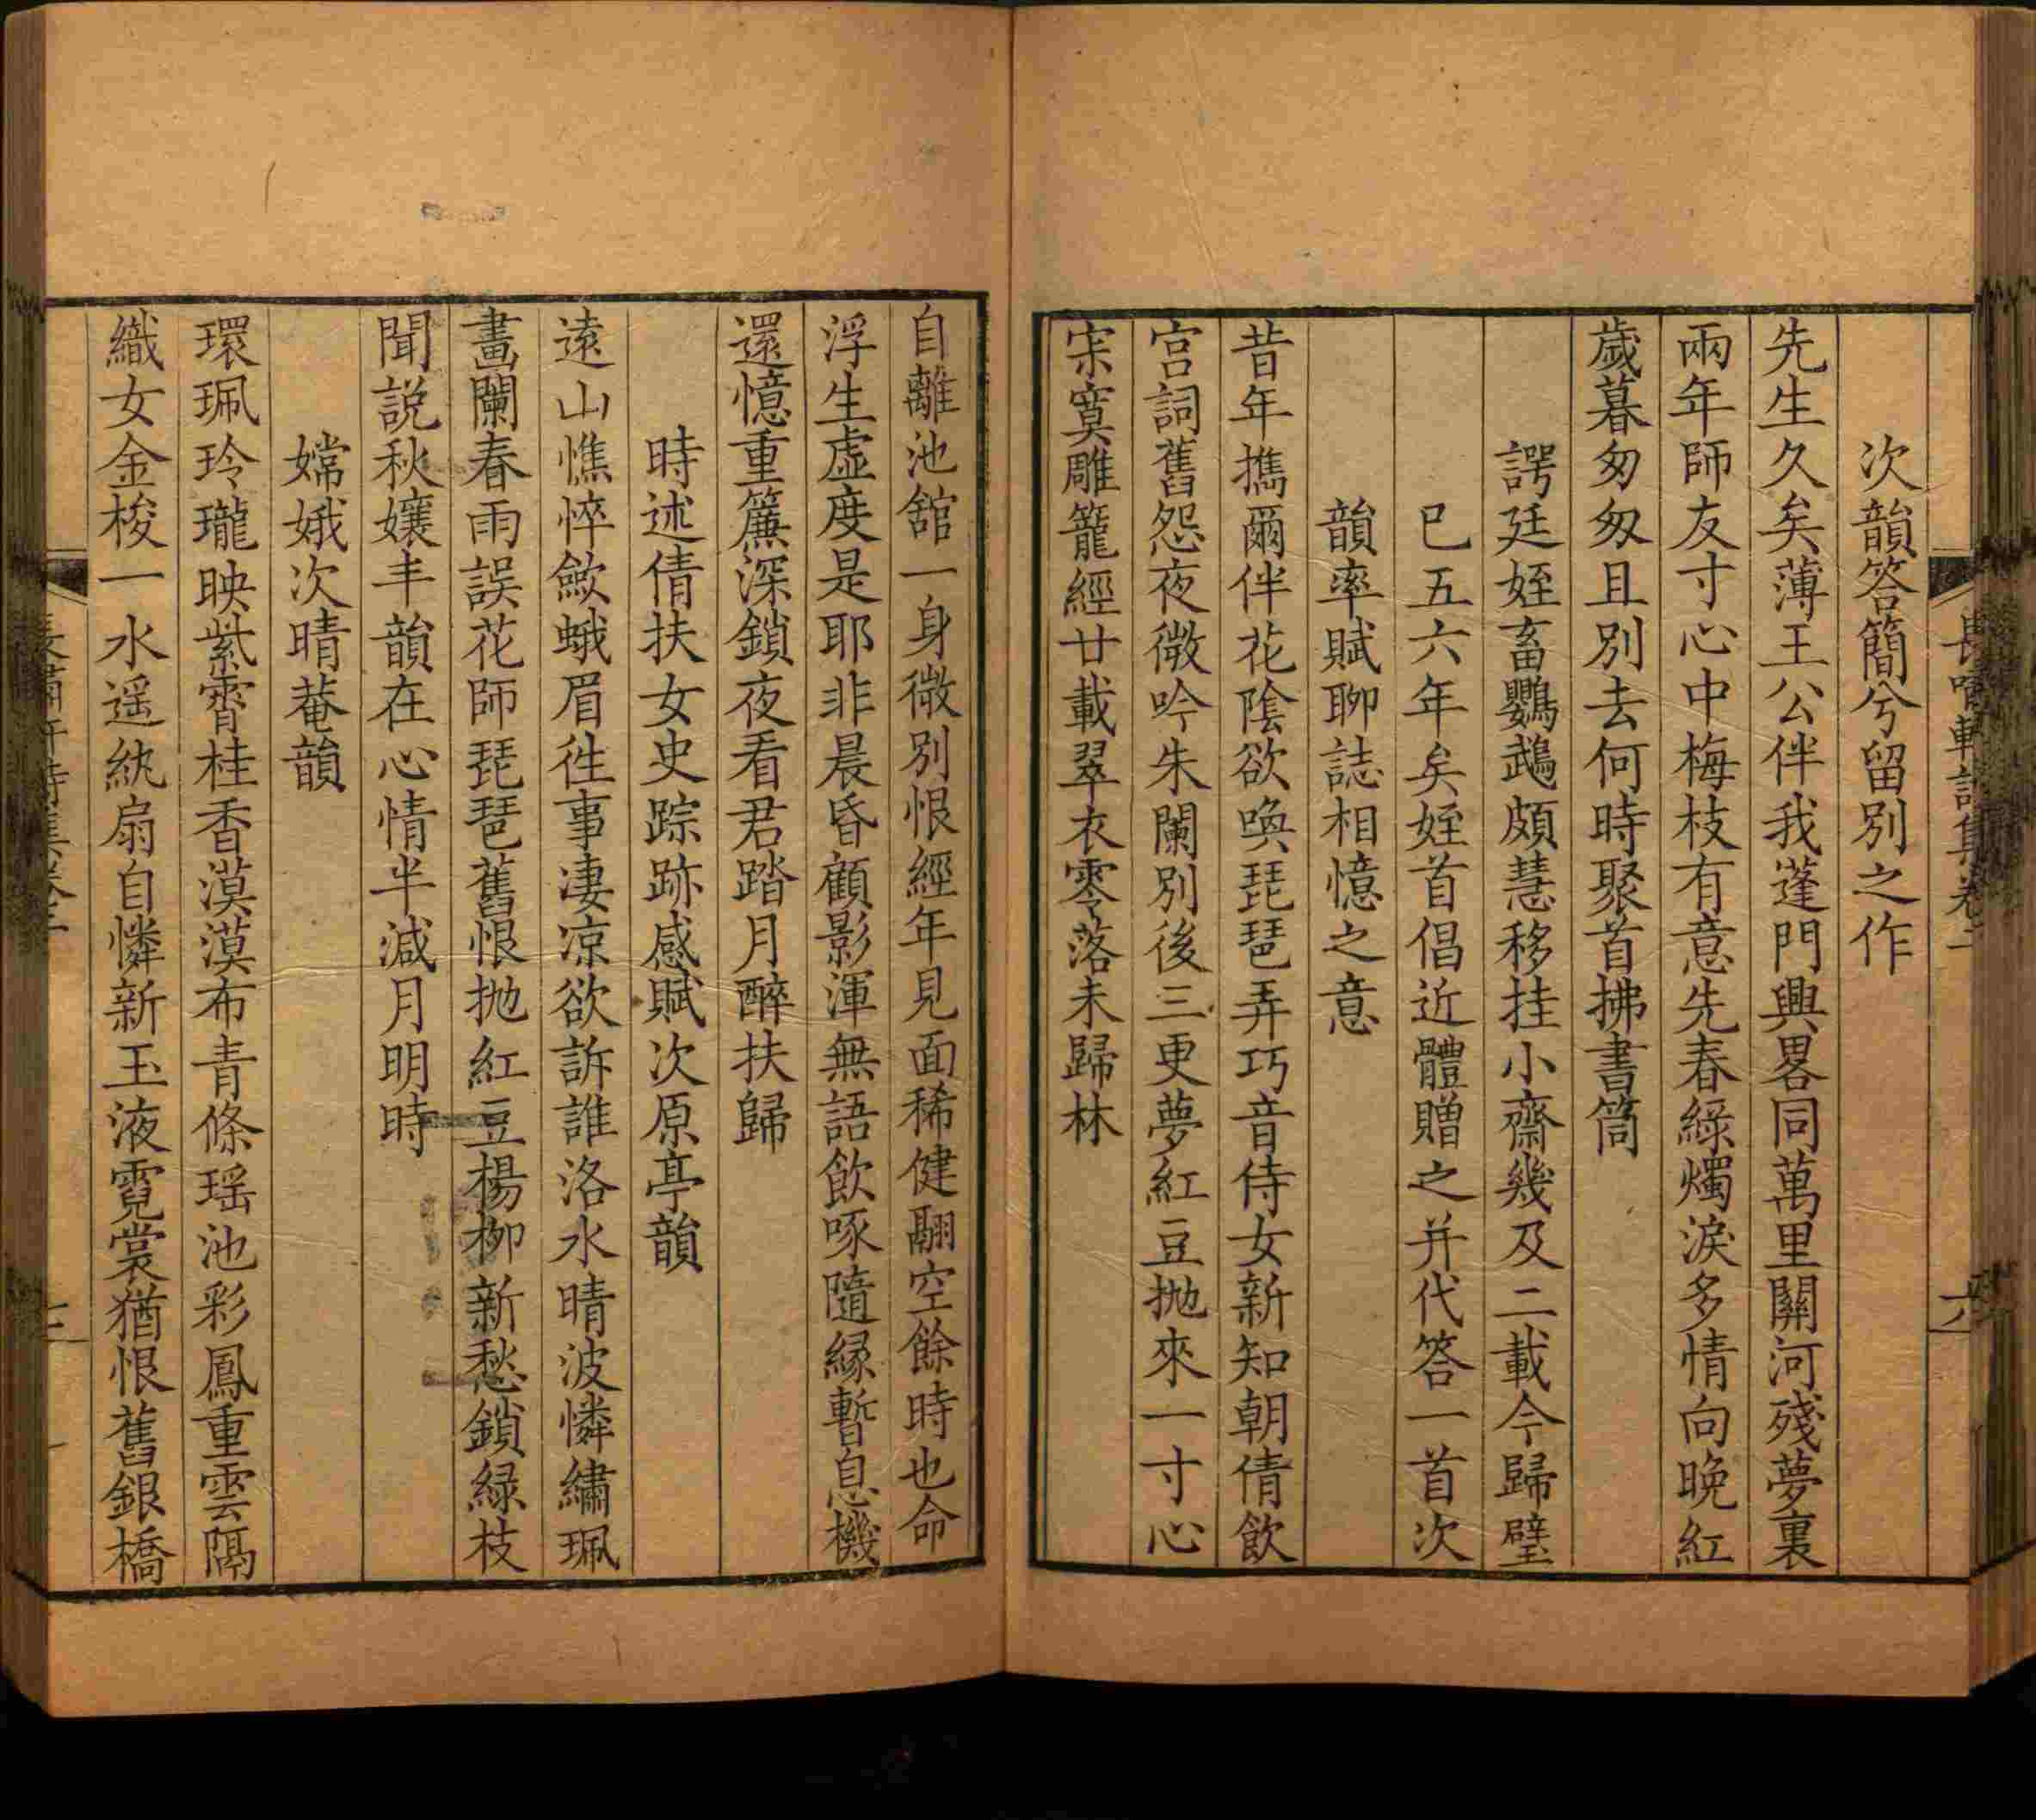 長嘯軒詩集卷二
六
次韻答簡兮留別之作
先生久矣薄王公伴我蓬門興畧同萬里關河殘夢裏
兩年師友寸心中梅枝有意先春綠燭淚多情向晚紅
歲暮匆匆且別去何時聚首拂書筒
諤廷姪畜鸚鵡頗慧移挂小齋幾及二載今歸璧
已五六年矣姪首倡近體贈之并代答一首次
韻率賦聊誌相憶之意
昔年攜爾伴花陰欲喚琵琶弄巧音侍女新知朝倩飲
宮詞舊怨夜微吟朱闌別後三更夢紅豆拋來一寸心
宋寞雕籠經廿載翠衣零落未歸林
自離池舘一身微別恨經年見面稀健翮空餘時也命
浮生虛度是耶非晨昏顧影渾無語飲啄隨緣暫息機
還憶重簾深鎖夜看君踏月醉扶歸
時述倩扶女史踪跡感賦次原亭韻
遠山憔悴斂蛾眉徃事凄凉欲訴誰洛水晴波憐繡珮
畫闌春雨誤花師琵琶舊恨拋紅豆楊柳新愁鎖綠枝
聞説秋孃丰韻在心情半減月明時
嫦娥次晴菴韻
環珮玲瓏映紫霄桂香漠漠布青條瑤池彩鳳重雲隔
織女金梭一水遥紈扇自憐新玉液霓裳猶恨舊銀橋